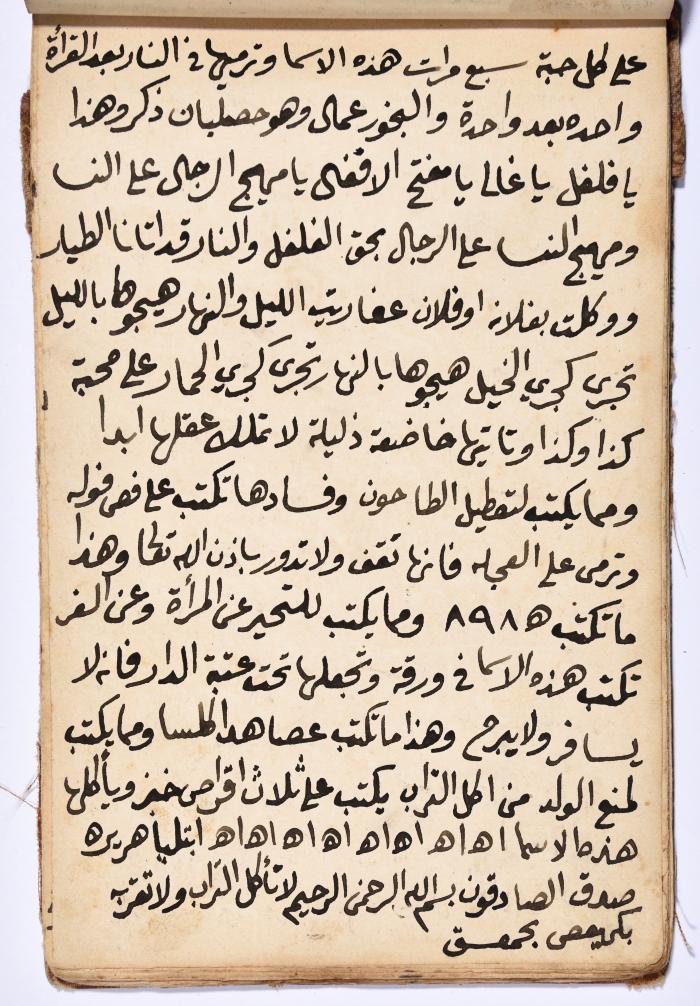 على كل حبة سبع مرات هذه الاسما وترميها في النار بعد القرأة
واحده بعد واحدة والبخور عمال وهو حصلبان ذكر وهذا
يا فلفل يا غالى يا مفتح الاقفال يا مهيج الرجال على النسا
ومهيج النسا على الرجال بحق الفلفل والنار قد اتانا الطيار
ووكلت بفلانه او فلان عفاريت الليل والنهار هيجوها بالليل
تجرى كجري الخيل هيجوها بالنهار تجرى كجري الحمار على محبة
كذا وكذا وتاتيها خاضعة ذليلة لا تملك عقلها ابدا
ومما يكتب لتعطيل الطاحون وفسادها تكتب على فص فوله
وترمى على العجله فانها تقف ولا تدور باذن الله تعالى وهذا
ما تكتب ٨٩٨٥ ومما يكتب للتحير عن المرأة وعن السفر
تكتب هذه الاسما في ورقة وتجعلها تحت عتبة الدار فانه لا
يسافر ولا يبرح وهذا ما تكتب ومما يكتب
لمنع الولد من اكل التراب يكتب على ثلاث اقراص خبز ويأكلها
هذه الاسما اه اه اه اه اه اه اه اه
صدق الصادقون بسم الله الرحمن الرحيم لا تأكل التراب ولا تقربه
بكهيعص بحمعسق